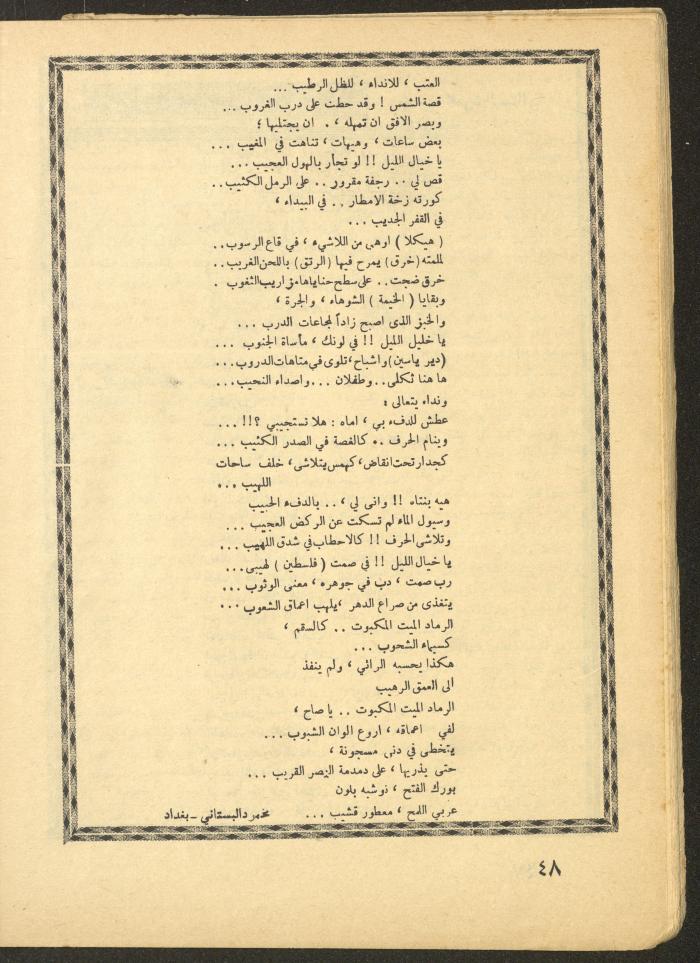 العتب ، للانداء ، للظل الرطيب ...
قصة الشمس ! وقد حطت على درب الغروب ...
وبصر الافق ان تمهله ، . ان يجتليها ؛
بعض ساعات ، وهيهات ، تناهت في المغيب ...
يا خيال الليل !! لو تجأر بالهول العجيب ...
قص لي .. رجفة مقرور .. على الرمل الكئيب ..
كورته زخة الامطار .. في البيداء ،
في القفر الجديب ...
( هيكلا ) اوهى من اللاشيء ، في قاع الرسوب ..
لملمته (خرق) يمرح فيها (الرتق) باللحن الغريب ..
خرق ضجت .. على سطح حناياها مزاريب الثغوب .
وبقايا ( الخيمة ) الشوهاء ، والجرة ،
والخبز الذى اصبح زاداً لمجاعات الدرب ...
يا خليل الليل !! في لونك ، مأساة الجنوب ...
(دير ياسين) واشباح ، تلوى في متاهات الدروب ...
ها هنا ثكلى .. وطفلان ... واصداء النحيب ...
ونداء يتعالى :
عطش للدفء بي ، اماه : هلا تستجيبي ؟!! ...
وينام الحرف .. كالغصة في الصدر الكئيب ...
كجدار تحت انقاض ، كهمس يتلاشى ، خلف ساحات
اللهيب ...
هيه بنتاه !! وانى لي ، .. بالدفء الحبيب
وسيول الماء لم تسكت عن الركض العجيب ...
وتلاشى الحرف !! كالاحطاب في شدق اللهيب ...
يا خيال الليل !! في صمت ( فلسطين ) لهيبى ...
رب صمت ، دب في جوهره ، معنى الوثوب ...
يتغذى من صراع الدهر ، يلهب اعماق الشعوب ...
الرماد الميت المكبوت .. كالسقم ،
كسيماء الشحوب ...
هكذا يحسبه الرائي ، ولم ينفذ
الى العمق الرهيب
الرماد الميت المكبوت .. يا صاح ،
لفي اعماقه ، اروع الوان الشبوب ...
يتخطى في دنى مسجونة ،
حتى يذريها ، على دمدمة النصر القريب ...
بورك الفتح ، نوشيه بلون
عربي اللمح ، معطور قشيب ... محمد دالبستاني - بغداد
٤٨